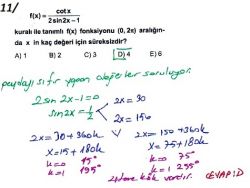 11/
f(x) = cotx / 2sin2x - 1
kuralı ile tanımlı f(x) fonksiyonu (0, 2π) aralığın-
da x in kaç değeri için süreksizdir?
A) 1 B) 2 C) 3 D) 4 E) 6
paydayı sıfır yapan değerler soruluyor.
2 sin 2x - 1 = 0
sin 2x = 1/2
2x = 30
2x = 150
2x = 30 + 360k
2x = 150 + 360k
x = 15 + 180k
x = 75 + 180k
k=0 15°
k=0 75°
k=1 195°
k=1 255°
4 tane kök vardır.
CEVAP: D